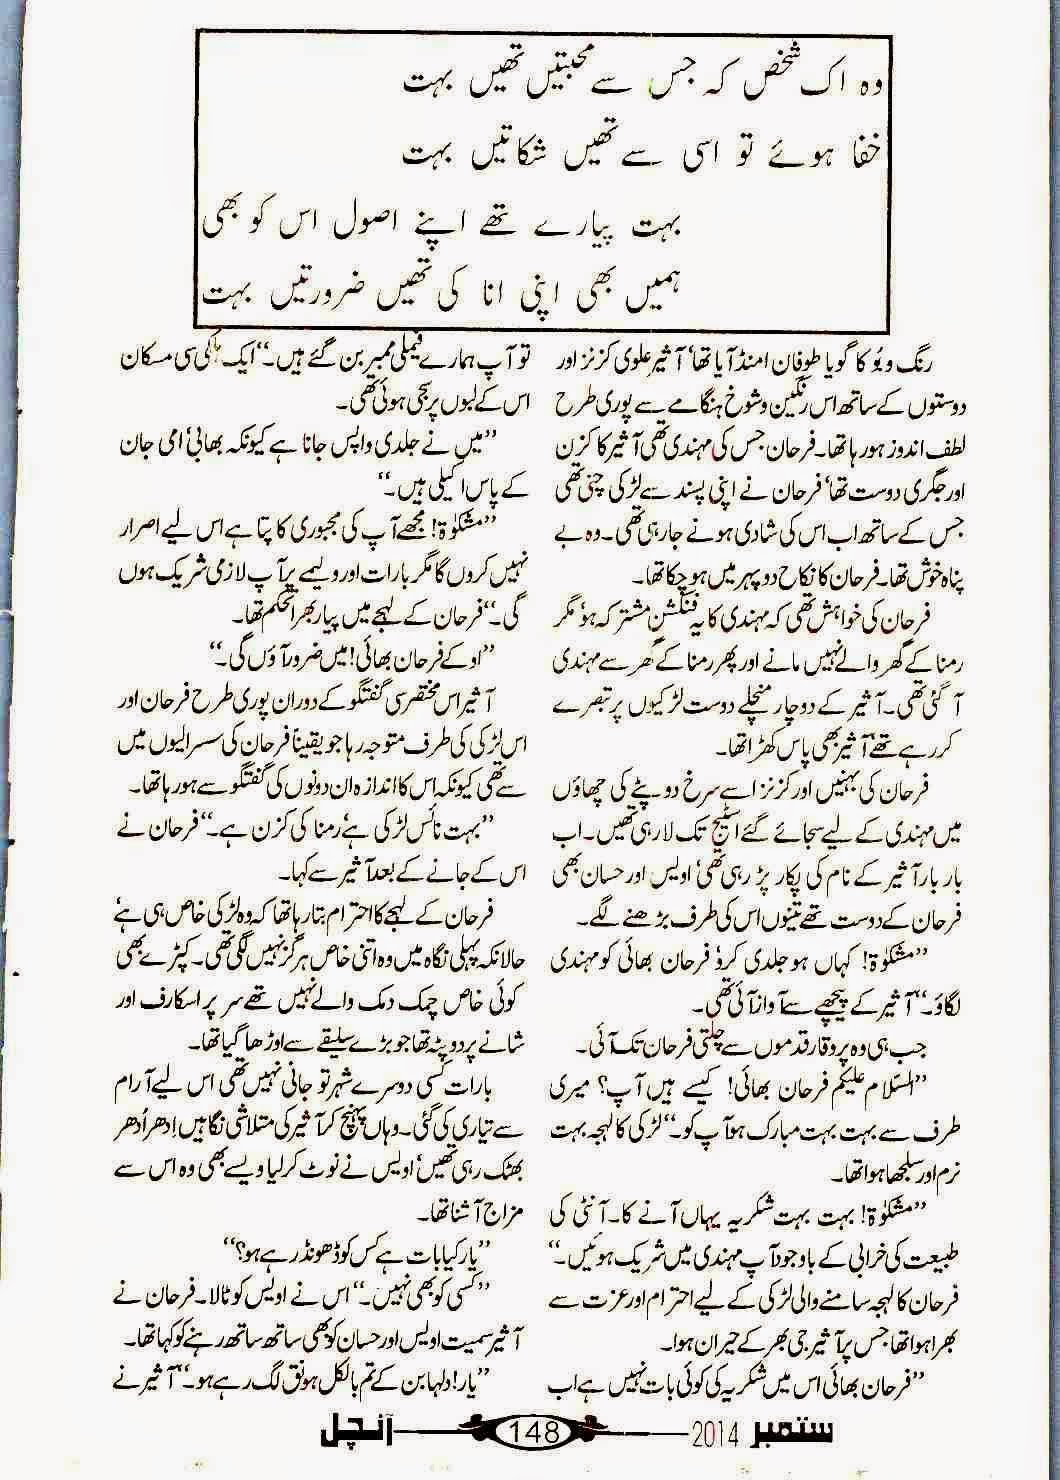 وہ اک شخص کہ جس سے محبتیں تھیں بہت
خفا ہوئے تو اسی سے تھیں شکاتیں بہت
بہت پیارے تھے اپنے اصول اس کو بھی
ہمیں بھی اپنی انا کی تھیں ضرورتیں بہت
رنگ و بو کا گویا طوفان امنڈ آیا تھا‘ آثیر علوی کزنز اور
دوستوں کے ساتھ اس رنگین و شوخ ہنگامے سے پوری طرح
لطف اندوز ہورہا تھا۔ فرحان جس کی مہندی تھی آثیر کا کزن
اور جگری دوست تھا‘ فرحان نے اپنی پسند سے لڑکی چنی تھی
جس کے ساتھ اب اس کی شادی ہونے جارہی تھی۔ وہ بے
پناہ خوش تھا۔ فرحان کا نکاح دوپہر میں ہوچکا تھا۔
فرحان کی خواہش تھی کہ مہندی کا یہ فنکشن مشترکہ ہو‘ مگر
رمنا کے گھر والے نہیں مانے اور پھر رمنا کے گھر سے مہندی
آ گئی تھی۔ آثیر کے دوچار منچلے دوست لڑکیوں پر تبصرے
کررہے تھے آثیر بھی پاس کھڑا تھا۔
فرحان کی بہنیں اور کزنز اسے سرخ دوپٹے کی چھاؤں
میں مہندی کے لیے سجائے گئے اسٹیج تک لارہی تھیں۔ اب
بار بار آثیر کے نام کی پکار پڑ رہی تھی‘ اویس اور حسان بھی
فرحان کے دوست تھے تینوں اس کی طرف بڑھنے لگے۔
”مشکوٰۃ! کہاں ہو جلدی کرو‘ فرحان بھائی کو مہندی
لگاؤ۔“ آثیر کے پیچھے سے آواز آئی تھی۔
جب ہی وہ پروقار قدموں سے چلتی فرحان تک آئی۔
”السّلام علیکم فرحان بھائی! کیسے ہیں آپ؟ میری
طرف سے بہت بہت مبارک ہو آپ کو۔“ لڑکی کا لہجہ بہت
نرم اور سلجھا ہوا تھا۔
”مشکوٰۃ! بہت بہت شکریہ یہاں آنے کا۔ آنٹی کی
طبیعت کی خرابی کے باوجود آپ مہندی میں شریک ہوئیں۔“
فرحان کا لہجہ سامنے والی لڑکی کے لیے احترام اور عزت سے
بھرا ہوا تھا جس پر آثیر جی بھر کے حیران ہوا۔
”فرحان بھائی اس میں شکریہ کی کوئی بات نہیں ہے اب
تو آپ ہمارے فیملی ممبر بن گئے ہیں۔“ ایک ہلکی سی مسکان
اس کے لبوں پر سجی ہوئی تھی۔
”میں نے جلدی واپس جانا ہے کیونکہ بھابی‘ امی جان
کے پاس اکیلی ہیں۔“
”مشکوٰۃ! مجھے آپ کی مجبوری کا پتا ہے اس لیے اصرار
نہیں کروں گا مگر بارات اور ولیمے پر آپ لازمی شریک ہوں
گی۔“ فرحان کے لہجے میں پیار بھرا تحکم تھا۔
”اوکے فرحان بھائی! میں ضرور آؤں گی۔“
آثیر اس مختصر سی گفتگو کے دوران پوری طرح فرحان اور
اس لڑکی کی طرف متوجہ رہا جو یقیناً فرحان کی سسرالیوں میں
سے تھی کیونکہ اس کا اندازہ ان دونوں کی گفتگو سے ہورہا تھا۔
”بہت نائس لڑکی ہے‘ رمنا کی کزن ہے۔“ فرحان نے
اس کے جانے کے بعد آثیر سے کہا۔
فرحان کے لہجے کا احترام بتارہا تھا کہ وہ لڑکی خاص ہی ہے‘
حالانکہ پہلی نگاہ میں وہ اتنی خاص ہرگز نہیں لگی تھی۔ کپڑے بھی
کوئی خاص چمک دمک والے نہیں تھے سر پر اسکارف اور
شانے پر دوپٹہ تھا جو بڑے سلیقے سے اوڑھا گیا تھا۔
بارات کسی دوسرے شہر تو جانی نہیں تھی اس لیے آرام
سے تیاری کی گئی۔ وہاں پہنچ کر آثیر کی متلاشی نگاہیں اِدھر اُدھر
بھٹک رہی تھیں‘ اویس نے نوٹ کرلیا ویسے بھی وہ اس سے
مزاج آشنا تھا۔
”یار کیا بات ہے کس کو ڈھونڈ رہے ہو؟“
”کسی کو بھی نہیں۔“ اس نے اویس کو ٹالا۔ فرحان نے
آثیر سمیت اویس اور حسان کو بھی ساتھ ساتھ رہنے کو کہا تھا۔
”یار! دلہا بن کے تم بالکل ہونق لگ رہے ہو۔“ آثیر نے
ستمبر 2014 148 آنچل